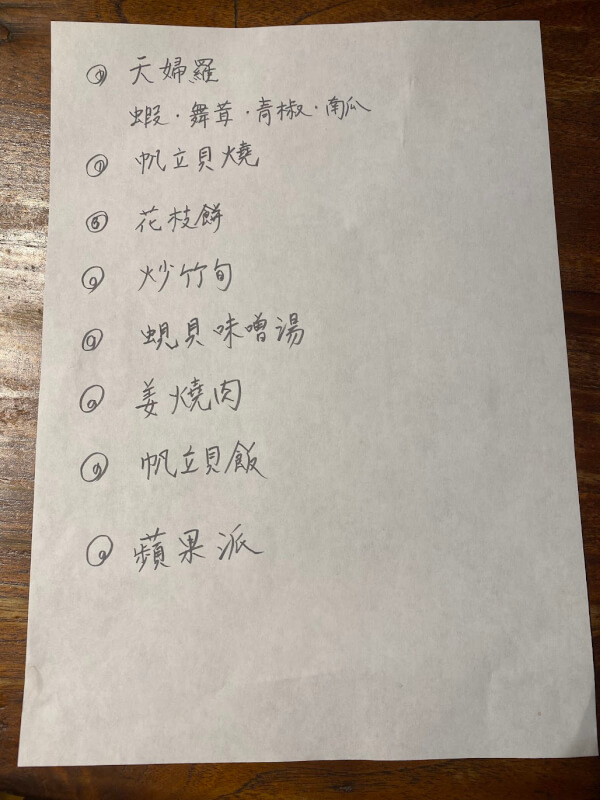 天婦羅
蝦·舞茸·青椒·南瓜
帆立貝燒
花枝餅
炒竹旬
蜆貝味噌湯
姜燒肉
帆立貝飯
蘋果派